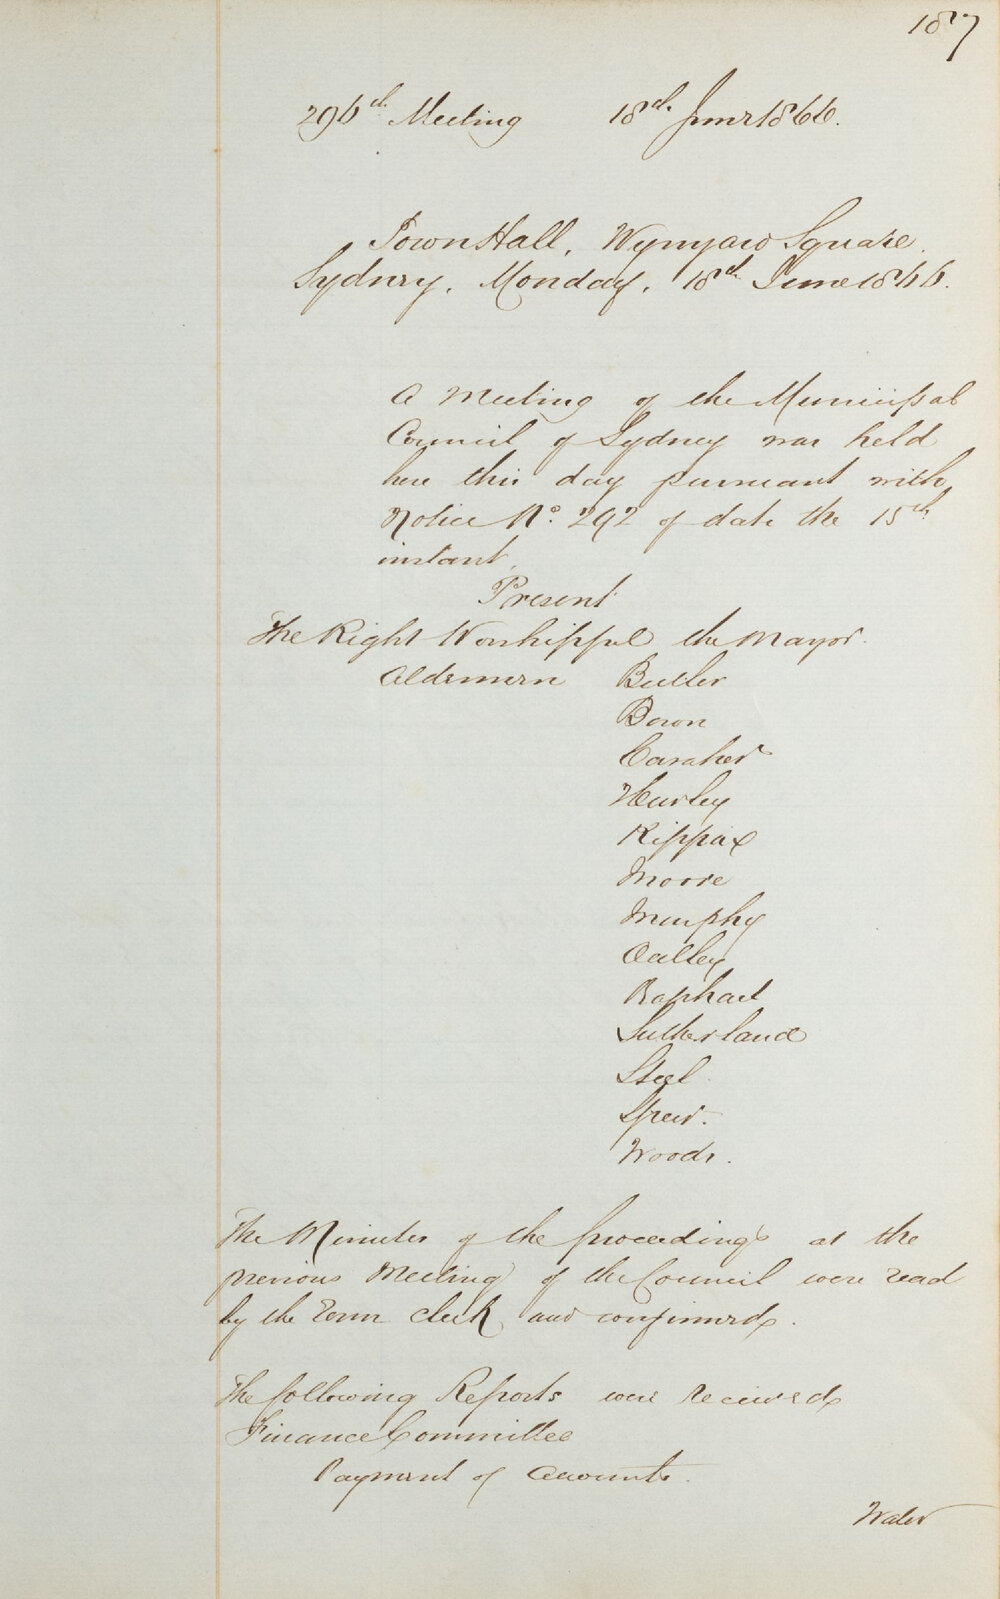 187
296th Meeting 18th June 1866.
Town Hall, Wynyard Square.
Sydney, Monday, 18th June 1866.
A Meeting of the Municipal
Council of Sydney was held
here this day pursuant with
Notice No. 292 of date the 15th
instant.
Present
The Right Worshipful the Mayor.
Aldermen Butler
Down
Caraher
Hurley
Kippax
Moore
Murphy
Oatley
Raphael
Sutherland
Steel
Speer.
Woods.
The Minutes of the proceedings at the
previous Meeting of the Council were read
by the Town Clerk and confirmed.
The following Reports were received
Finance Committee
Payment of Accounts.
Water